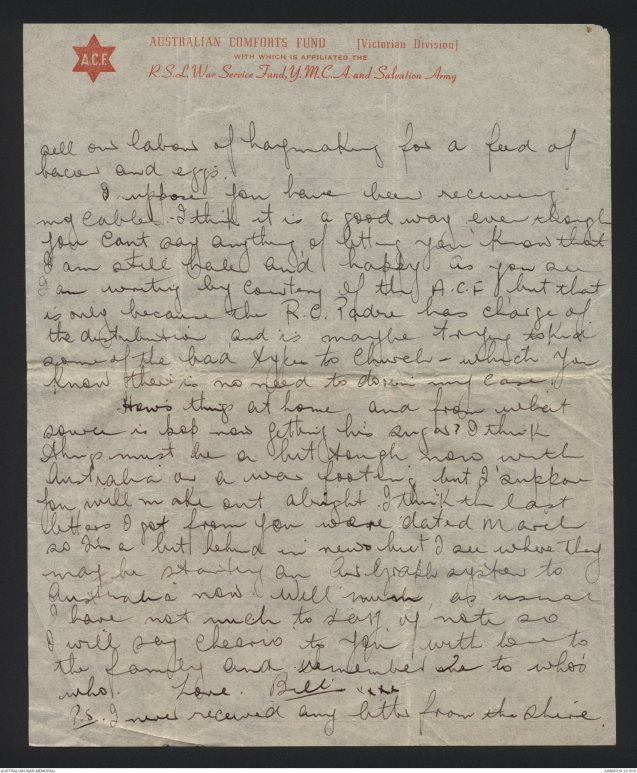 A.C.F.
AUSTRALIAN COMFORTS FUND [Victorian Division]
WITH WHICH IS AFFILIATED THE
R.S.L. War Service Fund, Y.M.C.A. and Salvation Army
sell our labour of haymaking for a feed of
bacon and eggs.
I suppose you have been receiving
my cables. I think it is a good way even though
you cant say anything of letting you know that
I am still hale and happy as you see
I am writing by courtesy of the A.C.F. but that
is only because the R.C. Padre has charge of
the distribution and is maybe trying to
some of the bad to Church - which you
know there is no need to do in my case.
Hows things at home and from what
source is pop now getting his sugar? I think
things must be a bit tough now with
Australia on a war footing but I suppose
you will make out alright. I think the last
letters I got from you were dated March
so I'm a bit behind in news but I see where they
may be starting an Air Graph system to
Australia now. Well much as usual
I have not much to say of note so
I will say cheerio to you with love to
the family and remember me to who's
who. Love. Bill xxxx
P.S. I never received any letter from the shire.
AUSTRALIAN WAR MEMORIAL